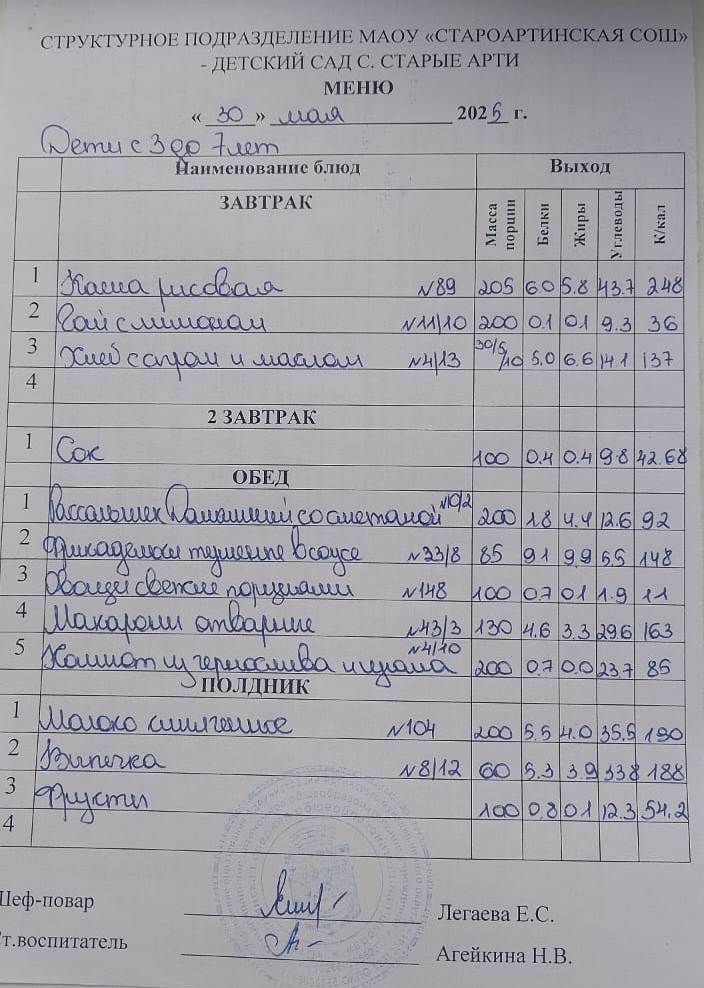 СТРУКТУРНОЕ ПОДРАЗДЕЛЕНИЕ МАОУ «СТАРОАРТИНСКАЯ СОШ»
- ДЕТСКИЙ САД С. СТАРЫЕ АРТИ
МЕНЮ
« 30 » мая 2025 г.
Дети с 3 до 7 лет
Наименование блюд Выход
ЗАВТРАК Масса порции Белки Жиры Углеводы К/кал
1 Каша рисовая №89 205 6.0 5.8 43.7 248
2 Чай с лимоном №11/10 200 0.1 0.1 9.3 36
3 Хлеб с сыром и маслом №4/13 30/5/10 5.0 6.6 14.1 137
4
2 ЗАВТРАК
1 Сок 100 0.4 0.4 9.8 42.68
ОБЕД
1 Рассольник Домашний со сметаной №10/2 200 1.8 4.4 12.6 92
2 Фрикадельки тушеные в соусе №33/8 85 9.1 9.9 5.5 148
3 Овощи свежие порциями №148 100 0.7 0.1 1.9 11
4 Макароны отварные №43/3 130 4.6 3.3 29.6 163
5 Компот из чернослива и изюма №4/10 200 0.7 0.0 23.7 85
ПОЛДНИК
1 Молоко сгущенное №104 200 5.5 4.0 35.5 190
2 Выпечка №8/12 60 5.3 3.9 33.8 188
3 Фрукты 100 0.8 0.1 12.3 54.2
4
Шеф-повар Легаева Е.С.
Ст.воспитатель Агейкина Н.В.